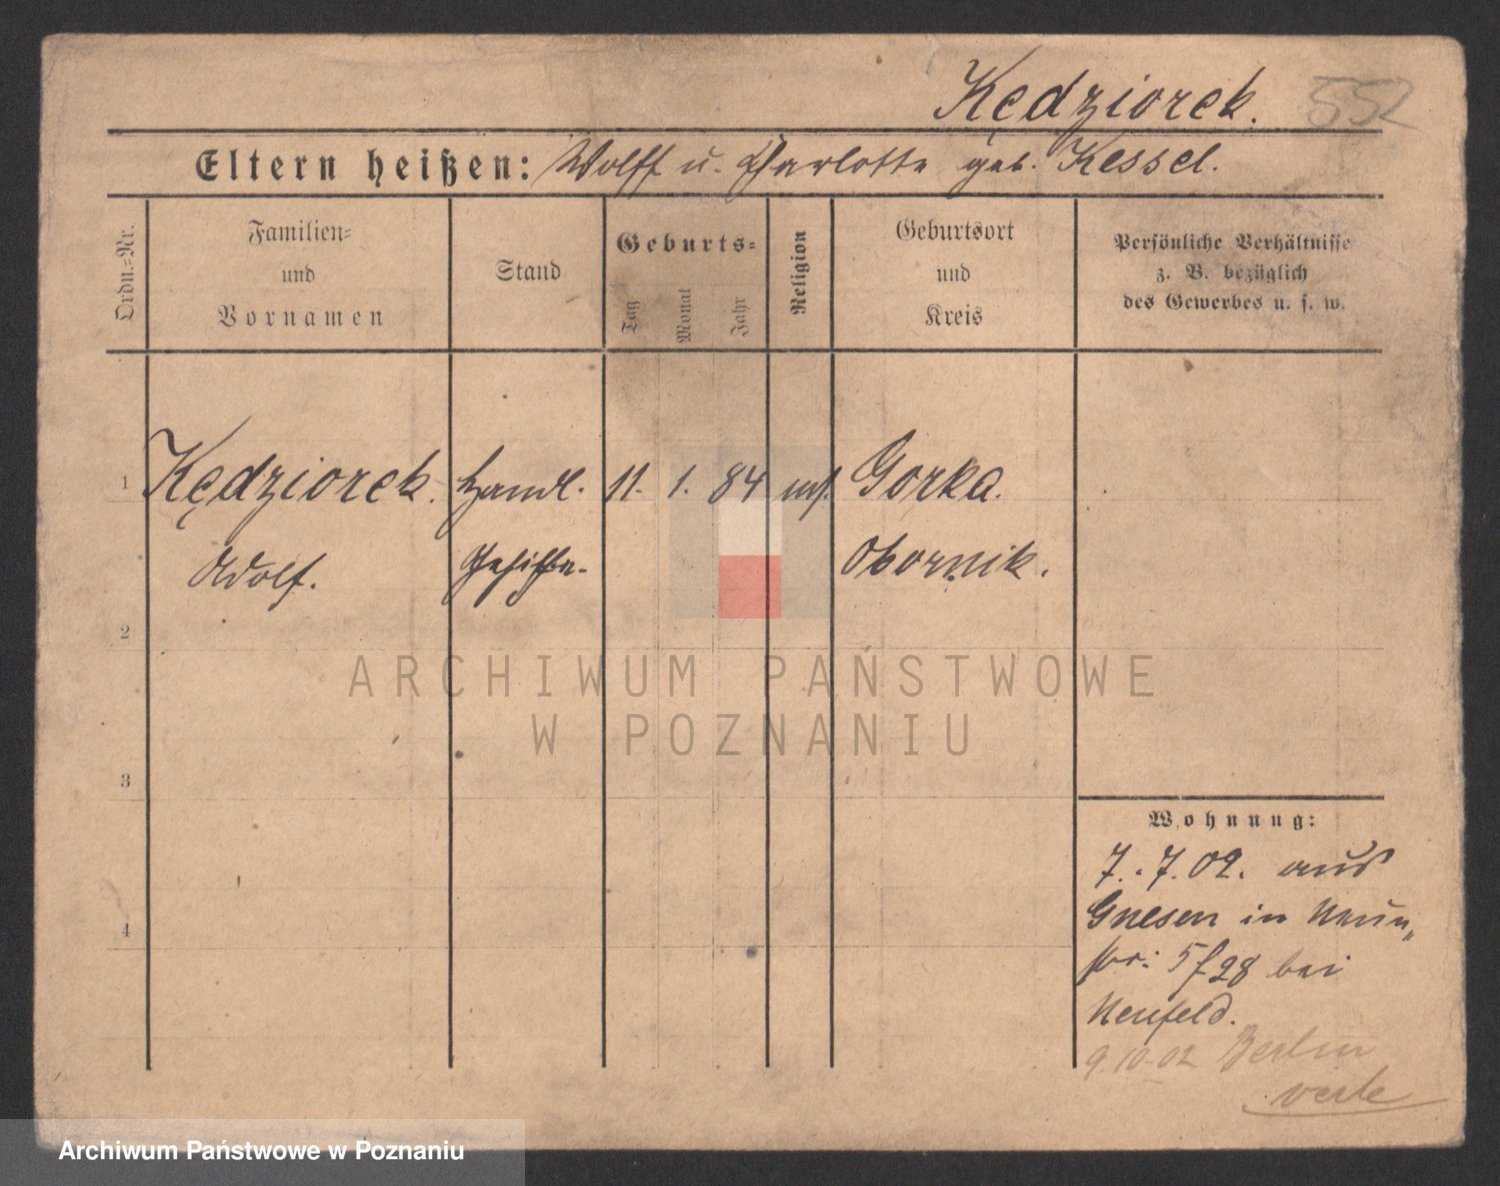 Kędziorek. 552
Eltern heißen: Wolff u. Charlotte geb. Kessel.
Ordn.-Nr.
Familien-
und
Vornamen
Stand
Geburts-
Tag
Monat
Jahr
Religion
Geburtsort
und
Kreis
Persönliche Verhältnisse
z. B. bezüglich
des Gewerbes u. s. w.
1 Kędziorek. Handl. 11. 1. 84 mos. Gorka.
Adolf. Gehilfe. Obornik.
2
3
4
Wohnung:
7. 7. 02. aus
Gnesen in
5/28 bei
Neufeld.
9.10.02 Berlin
ARCHIWUM PAŃSTWOWE
W POZNANIU
Archiwum Państwowe w Poznaniu